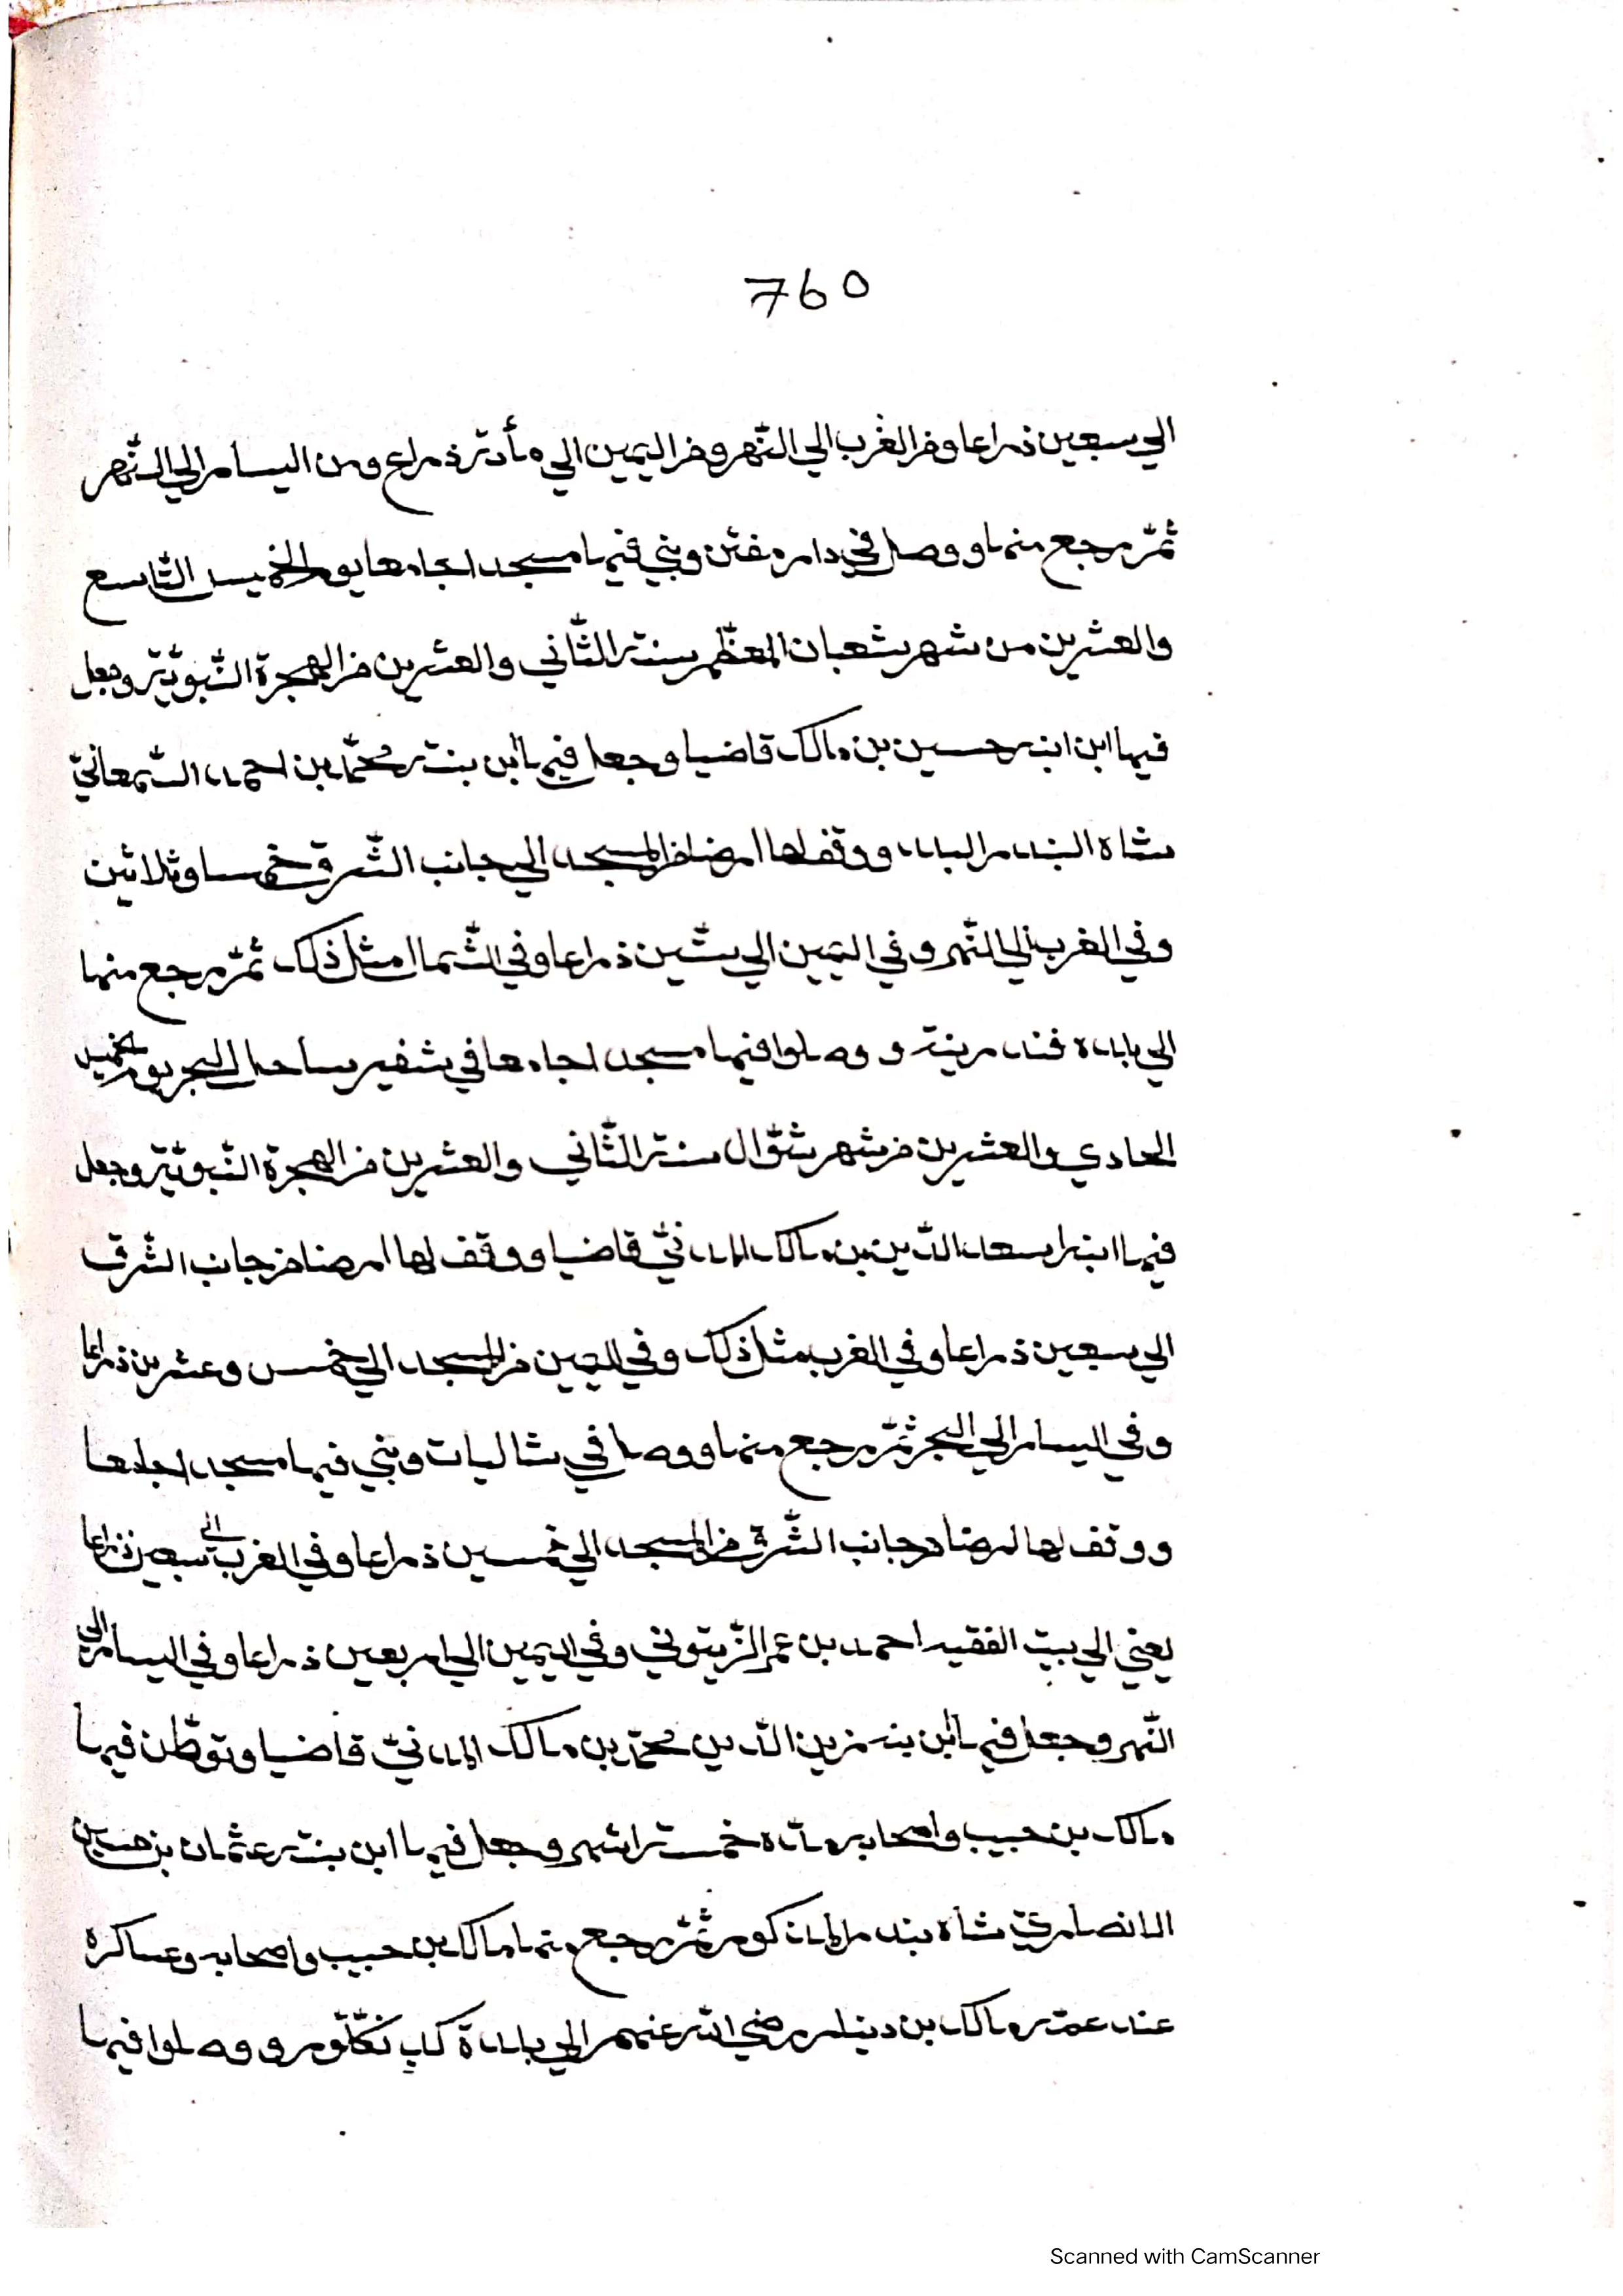 760
الي سبعين ذراعا ومن الغرب الي النّهر ومن اليمين الي مأة ذراع ومن اليسار الي النّهر
ثمّ رجع منها ووصل في دارمفتن وبني فيها مسجدا جامعا يوم الخميس التّاسع
والعشرين من شهر شعبان المعظّم سنة الثّاني والعشرين من الهجرة النّبويّة وجعل
فيها ابن ابنه حسين بن مالك قاضيا وجعل فيها ابن بنته محمّد بن احمد السّمعانيّ
شاه البندر البلد ووقف لها ارضا من المسجد الي جانب الشّرق خمسا وثلاثين
وفي الغرب الي النّهر وفي اليمين الي ستّين ذراعا وفي الشّمال مثل ذلك ثمّ رجع منها
الي بلدة فندرينة ووصلوا فيها مسجدا جامعا في شفير ساحل البحر يوم الخميس
الحادي والعشرين من شهر شوّال سنة الثّاني والعشرين من الهجرة النّبويّة وجعل
فيها ابنه سعد الدّين بن مالك المدنيّ قاضيا ووقف لها ارضا من جانب الشّرق
الي سبعين ذراعا وفي الغرب مثل ذلك وفي اليمين من المسجد الي خمس وعشرين ذراعا
وفي اليسار الي البحر ثمّ رجع منها ووصل في شاليات وبني فيها مسجدا جامعا
ووقف لها ارضا من جانب الشّرق من المسجد الي خمسين ذراعا وفي الغرب الي سبعين ذراعا
يعني الي بيت الفقيه احمد بن عمر الزّيتوني وفي اليمين الي اربعين ذراعا وفي اليسار الي
النّهر وجعل فيها ابن بنته زين الدّين محمّد بن مالك المدنيّ قاضيا وتوطّن فيها
مالك بن حبيب واصحابه مدّة خمسة اشهر وجعل فيها ابن بنته عثمان بن حسين
الانصاريّ شاه بندر المذكور ثمّ رجع منها مالك بن حبيب واصحابه وعساكره
عند عمّه مالك بن دينار رضي الله عنهم الي بلدة كدنكلّور ووصلوا فيها
Scanned with CamScanner